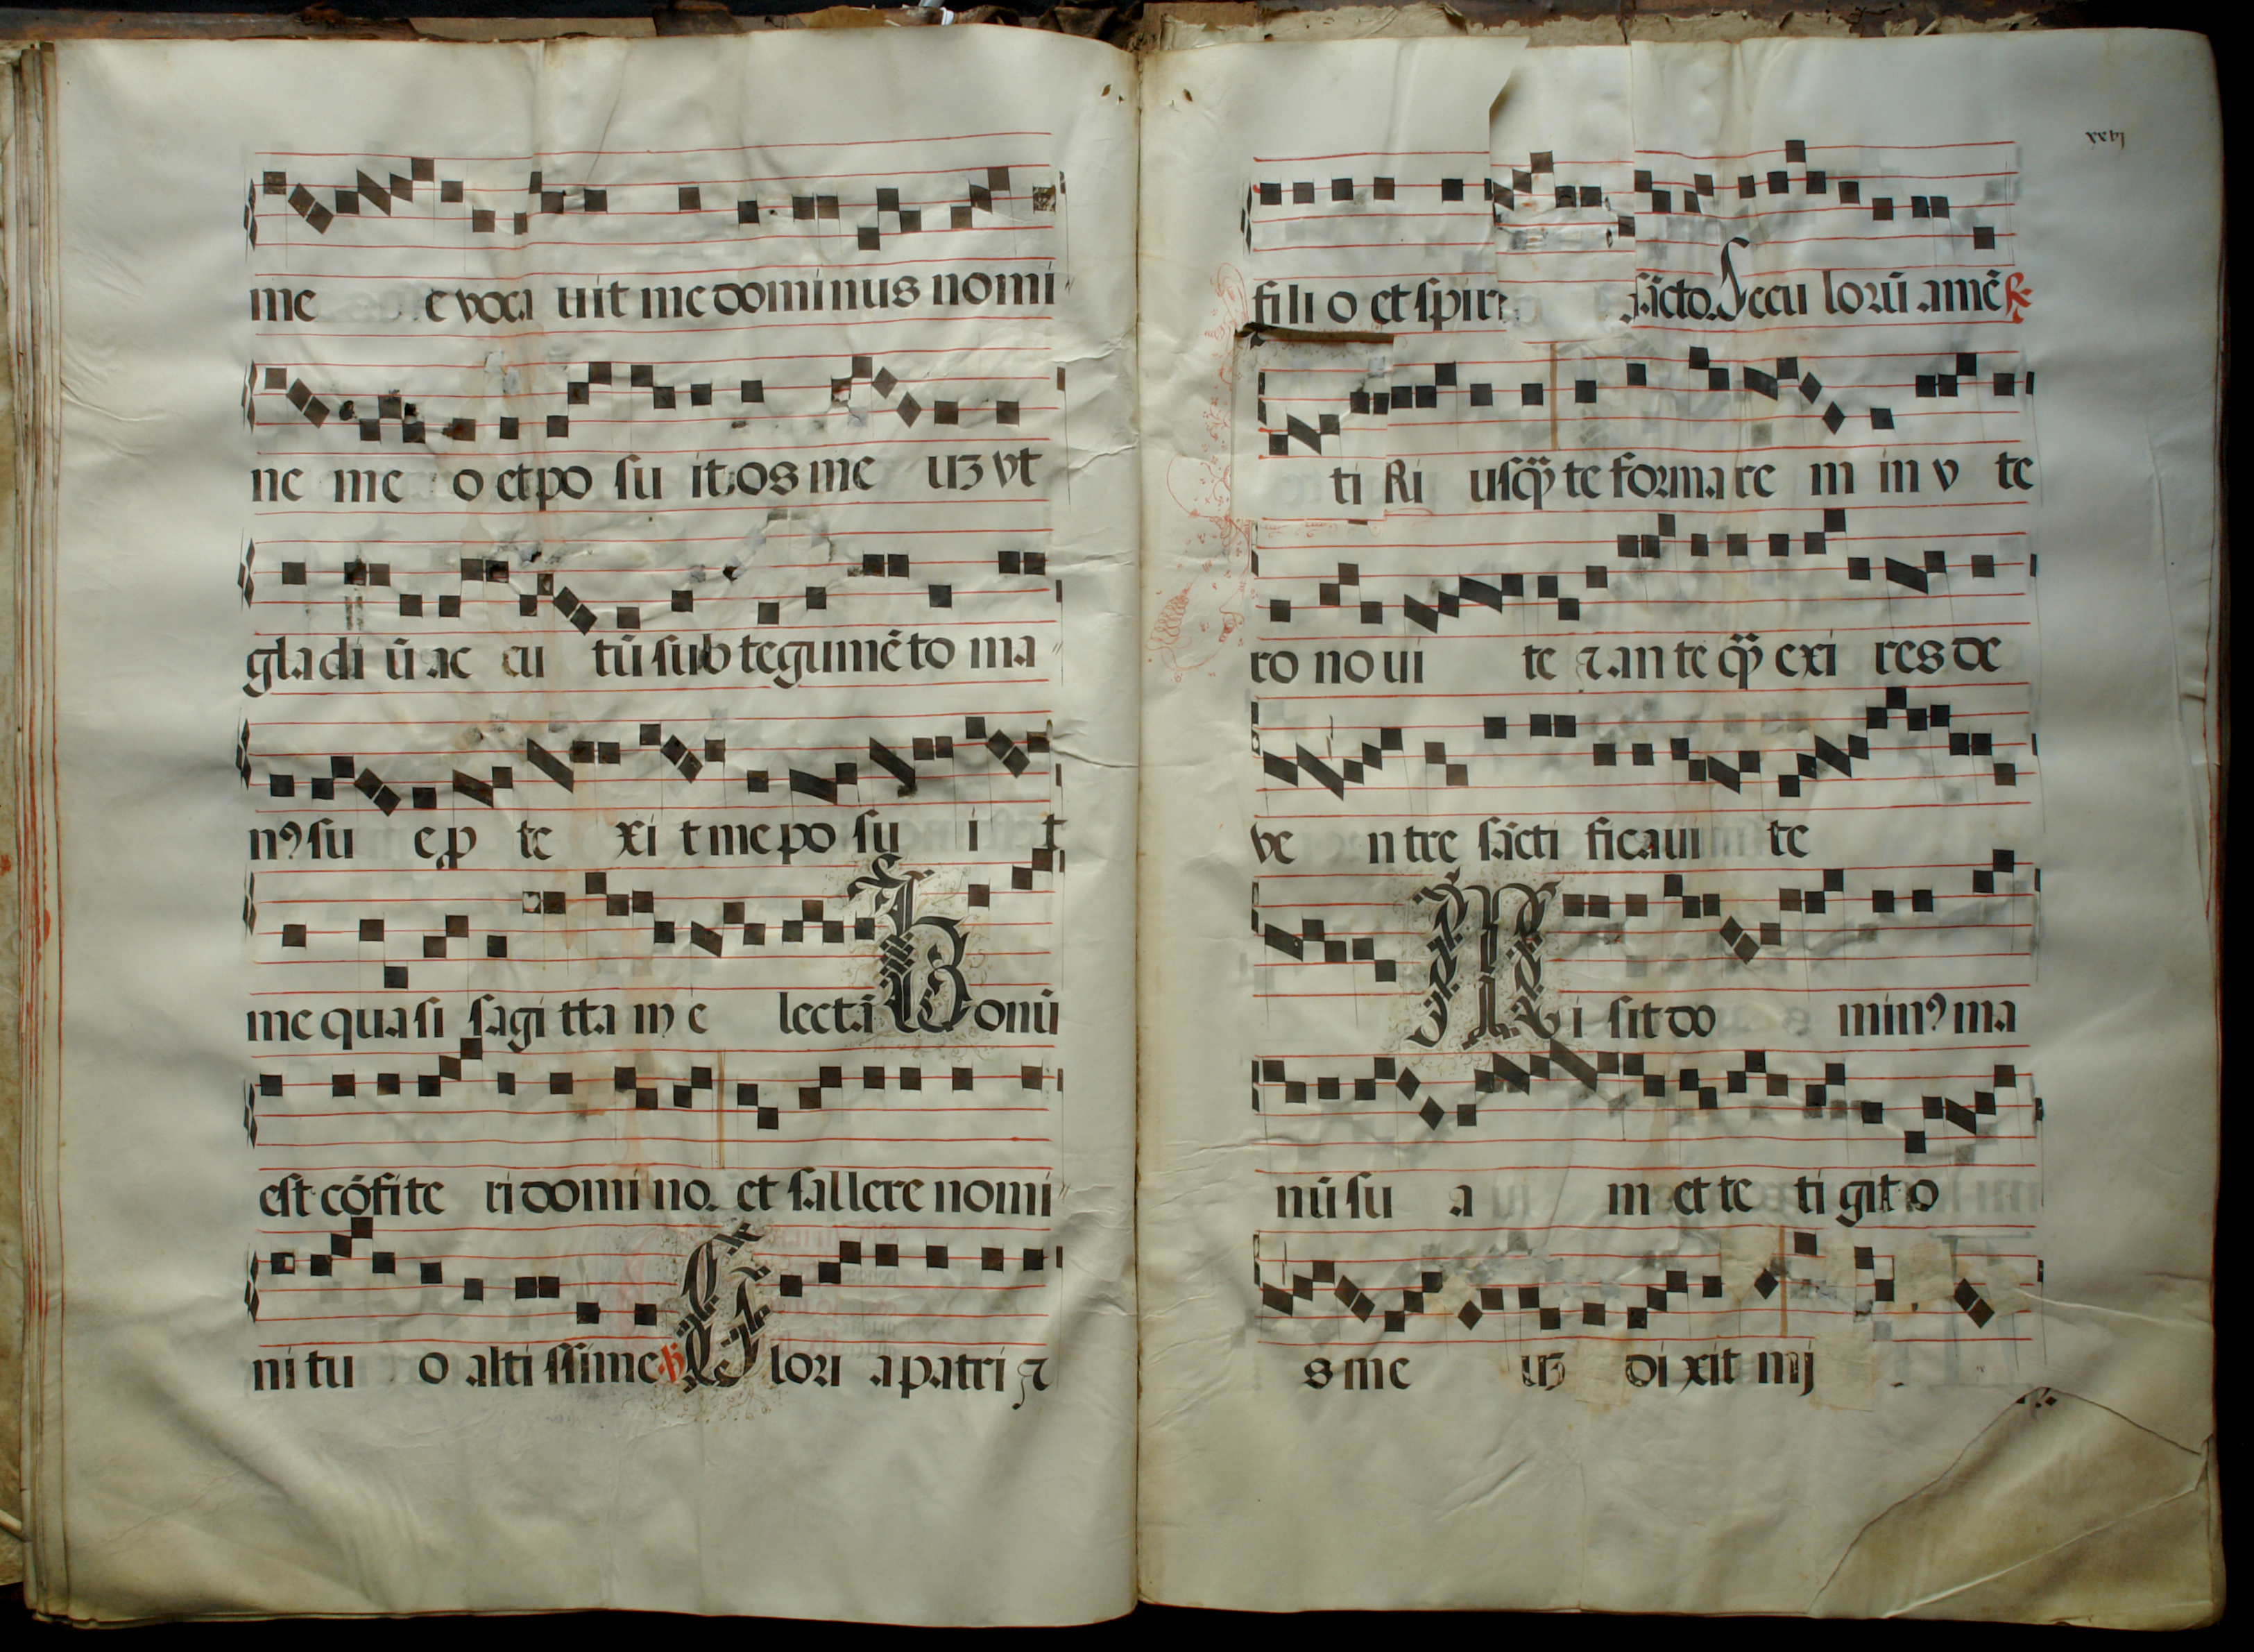 me e voca uit me dominus nomi
ne me o et po su it os me uʒ vt
gladi ū ac cu tū sub tegumēto ma
nꝰ su e ꝑ te xi t me po su i t
me quasi sagi tta m e lectā Bonū
est cōfite ri domi no. et sallere nomi
ni tu o alti ssime. Glori a patri ⁊
xxvj
fili o et spiri sācto. Seculorū amē R
ti Ri usq̄ te formare m in v te
ro no ui te ⁊ an te q̄ exi res de
ve n tre sācti ficaui te
Mi sit do minꝰ ma
nū su a m et te ti git o
s me uʒ di xit mj